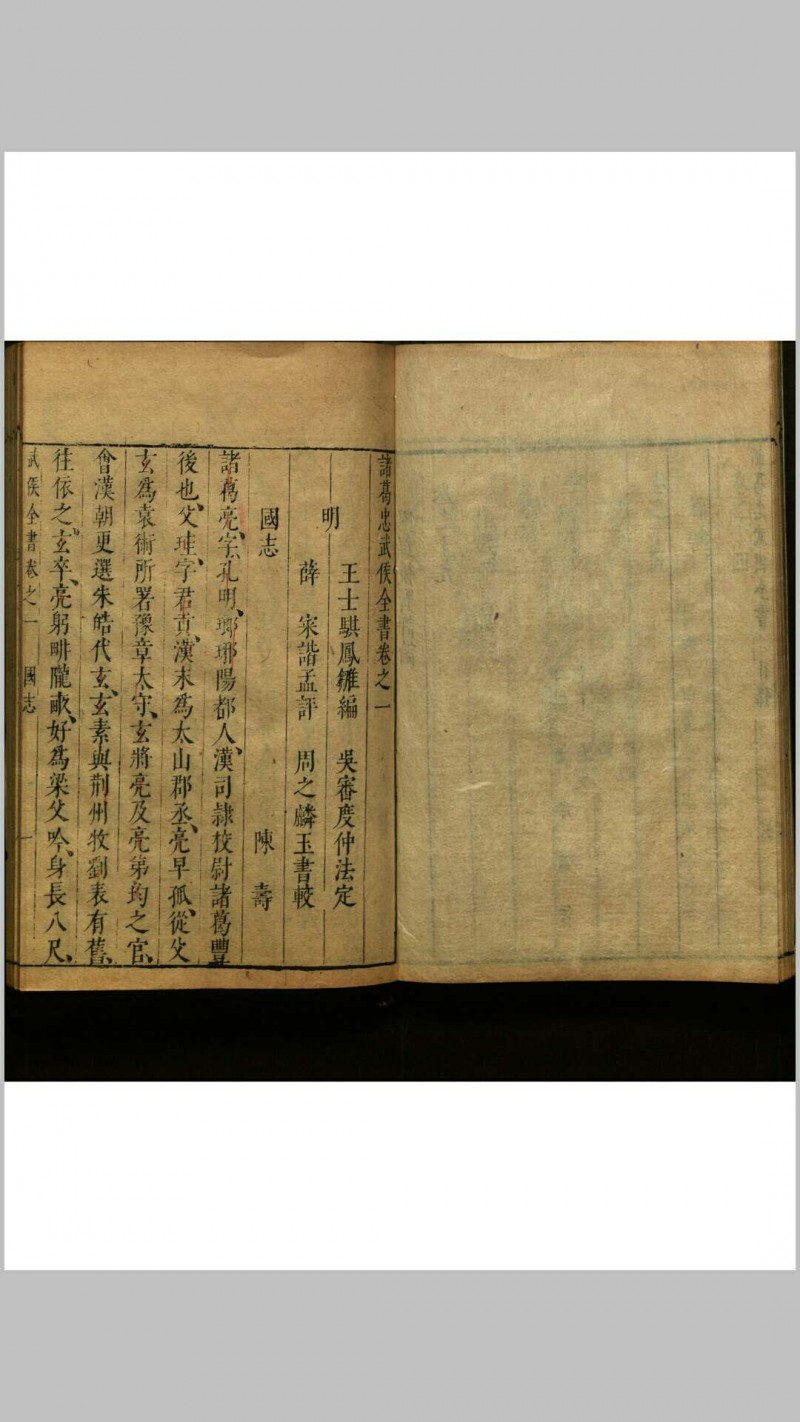 諸葛忠武侯全書卷之一
明
王士騏鳳雛編　吳審度仲法定
薛寀諧孟評　周之麟玉書較
國志　陳壽
諸葛亮、字孔明、瑯琊陽都人、漢司隷校尉諸葛豐
後也、父珪、字君貢、漢末為太山郡丞、亮早孤、從父
玄為袁術所署豫章太守、玄將亮及亮弟均之官、
會漢朝更選朱皓代玄、玄素與荆州牧劉表有舊、
往依之、玄卒、亮躬畊隴畝、好為梁父吟、身長八尺、
武侯全書卷之一　國志　一